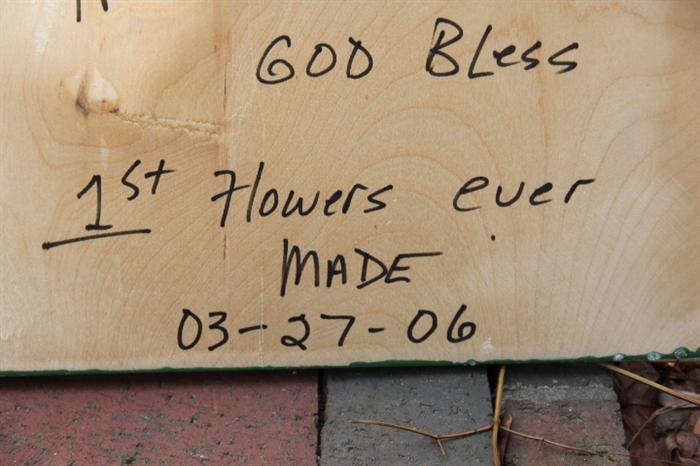 GOD BLess
1st Flowers ever
MADE
03-27-06